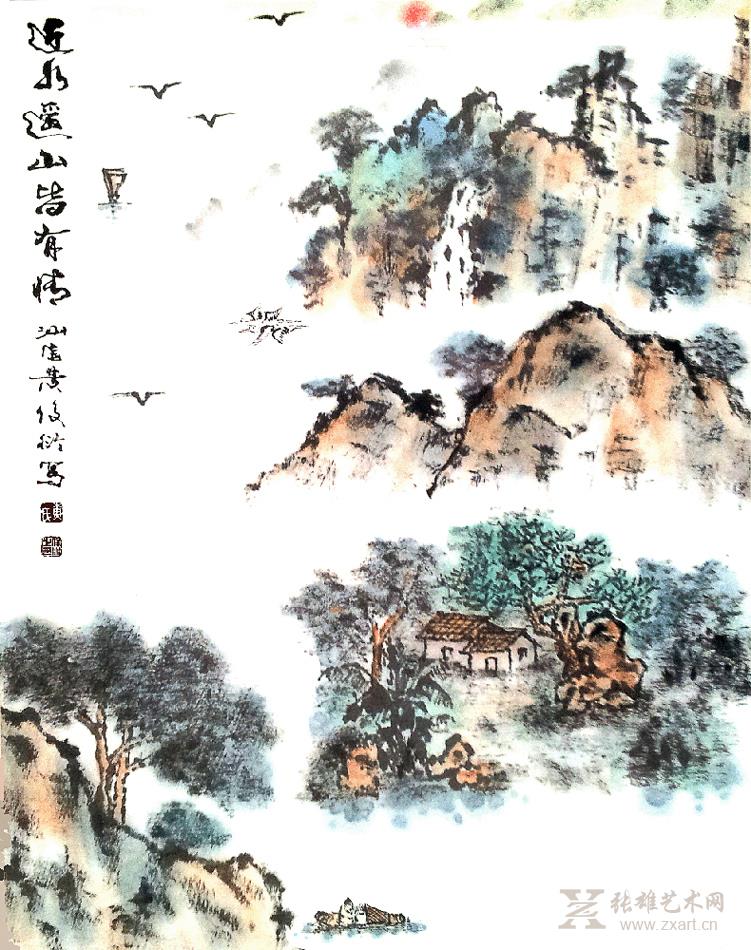 近水遥山皆有情
汕尾黄俊写
张雄艺术网
www.zxart.cn